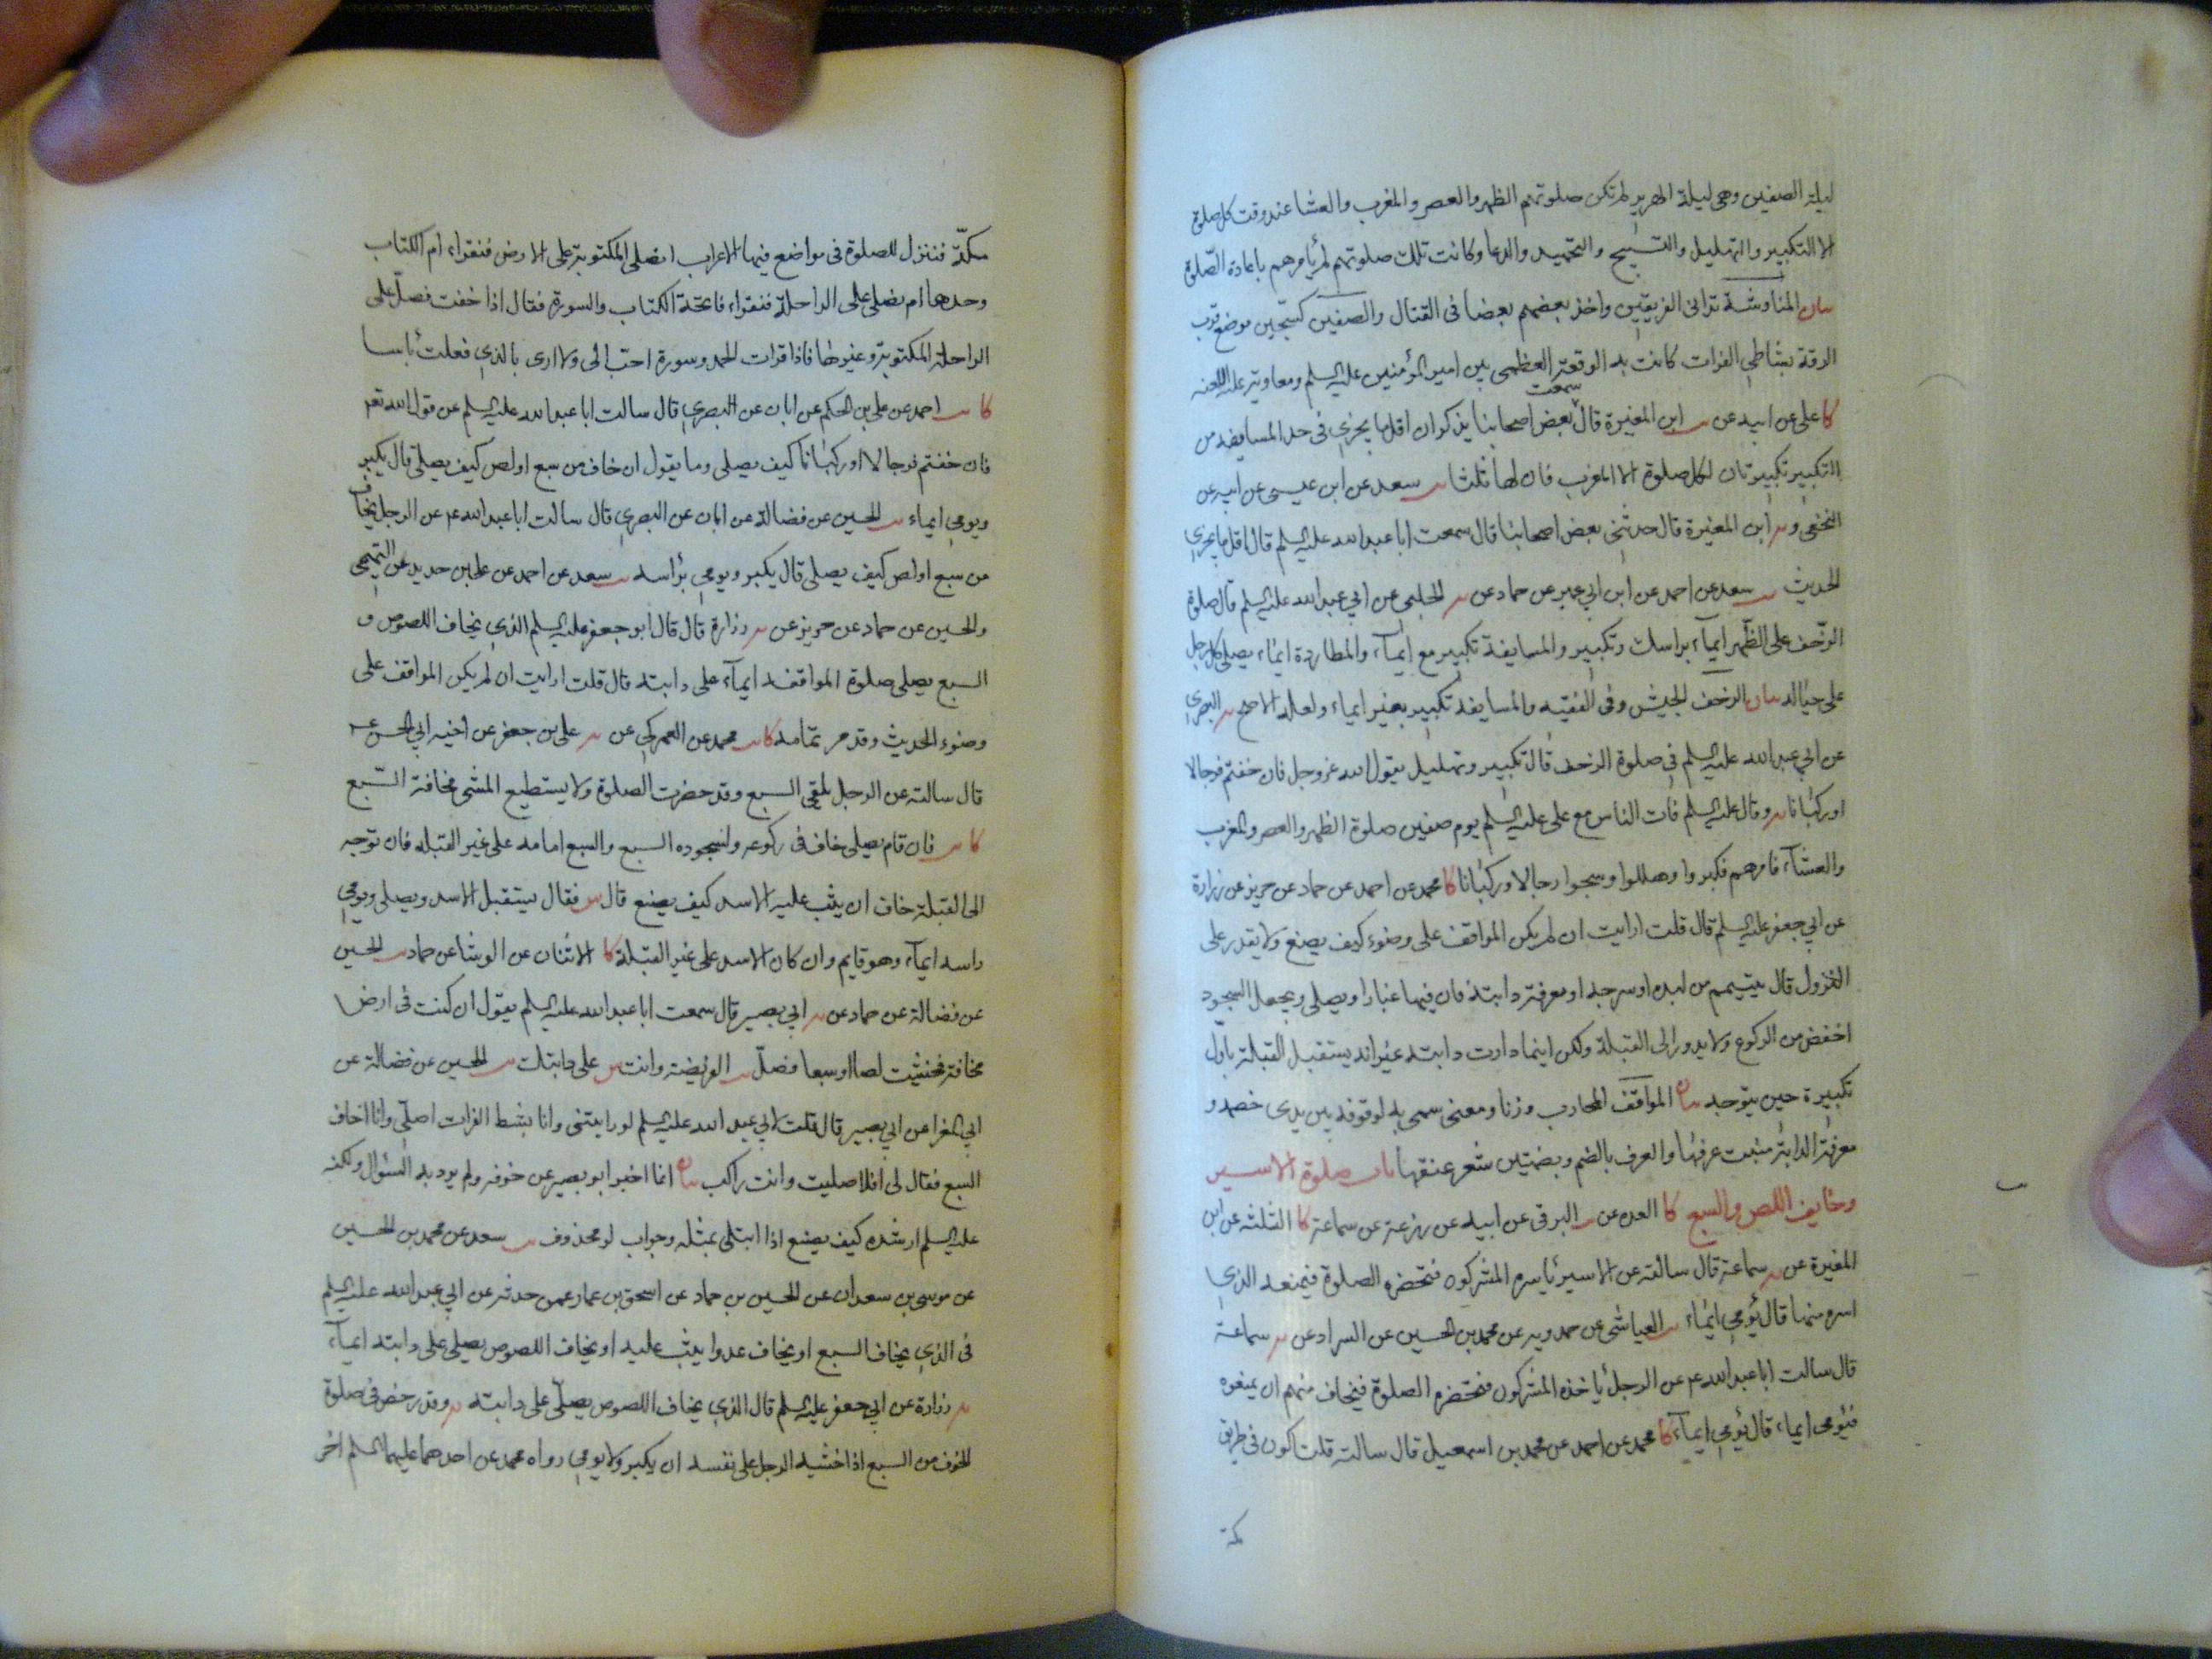 ليلة الصفين وهى ليلة الهرير لم تكن صلوتهم الظهر والعصر والمغرب والعشا عند وقت كل صلوة
الا التكبير والتهليل والتسبيح والتحميد والدعا وكانت تلك صلوتهم لم يأمرهم باعادة الصّلوة
بيان المناوشة تدانى الفريقين واخذ بعضهم بعضا فى القتال والصفين كسجين موضع قرب
الرقة بشاطى الفرات كانت به الوقعة العظمى بين امير المؤمنين عليه السلم ومعاوية عليه اللعنه
كا على عن ابيه عن يب ابن المغيرة قال سمعت بعض اصحابنا يذكر ان اقل ما يجزى فى حد المسايفه من
التكبير تكبيرتان لكل صلوة الا المغرب فان لها ثلثا يب سعد عن ابن عيسى عن ابيه عن
النخعى و يه ابن المغيرة قال حدثنى بعض اصحابنا قال سمعت ابا عبد الله عليه السلم قال اقل ما يجزى
الحديث يب سعد عن احمد عن ابن ابي عمير عن حماد عن يه الحلبى عن ابي عبد الله عليه السلم قال صلوة
الزّحف على الظّهر ايمآء براسك وتكبير والمسايفة تكبير مع ايمآء والمطاردة ايماء يصلى كل رجل
على حياله بيان الزحف الجيش وفى الفقيه والمسايفه تكبير بغير ايماء ولعله الاصح يه البصرى
عن ابي عبد الله عليه السلم فى صلوة الزحف قال تكبير وتهليل يقول الله عز وجل فان خفتم فرجالا
او ركبانا يه وقال عليه السلم فات الناس مع على عليه السلم يوم صفين صلوة الظهر والعصر والمغرب
والعشآء فامرهم فكبروا وهللوا وسبحوا رجالا وركبانا كا محمد عن احمد عن حماد عن حريز عن زرارة
عن ابي جعفر عليه السلم قال قلت ارايت ان لم يكن المواقف على وضوء كيف يصنع ولا يقدر على
النزول قال يتيمم من لبده او سرجه او معرفة دابته فان فيها غبارا ويصلى ويجعل السجود
اخفض من الركوع ولا يدور الى القبلة ولكن اينما دارت دابته غير انه يستقبل القبلة باول
تكبيرة حين يتوجه بيان المواقف المحارب وزنا ومعنى سمى به لوقوفه بين يدى خصمه و
معرفة الدابة منبت عرفها والعرف بالضم وبضمتين شعر عنقها باب صلوة الاسير
وخايف اللص والسبع كا العده عن يب البرقى عن ابيه عن زرعة عن سماعة كا الثلثه عن ابن
المغيرة عن يه سماعة قال سالته عن الاسير يأسره المشركون فتحضره الصلوة فيمنعه الذى
اسره منها قال يؤمى ايماء يب العياشى عن حمدويه عن محمد بن الحسين عن السراد عن يه سماعة
قال سالت ابا عبد الله ع عن الرجل يأخذه المشركون فتحضره الصلوة فيخاف منهم ان يمنعوه
فيؤمى ايماء قال يؤمى ايمآء كا محمد عن احمد عن محمد بن اسمعيل قال سالته قلت اكون فى طريق
مكة
مكّة فننزل للصلوة فى مواضع فيها الاعراب انصلى المكتوبة على الارض فنقراء ام الكتاب
وحدها ام نصلى على الراحلة فنقراء فاتحة الكتاب والسورة فقال اذا خفت فصلّ على
الراحلة المكتوبة وغيرها فاذا قرات الحمد وسورة احبّ الى ولا ارى بالذى فعلت بأسا
كا يب احمد عن على بن الحكم عن ابان عن البصرى قال سالت ابا عبد الله عليه السلم عن قول الله تعم
فان خفتم فرجالا او ركبانا كيف يصلى وما يقول ان خاف من سبع او لص كيف يصلى قال يكبر
ويومى ايماء يب الحسين عن فضالة عن ابان عن البصرى قال سالت ابا عبد الله ع عن الرجل يخاف
من سبع او لص كيف يصلى قال يكبر ويومى برأسه يب سعد عن احمد عن على بن حديد عن التميمى
والحسين عن حماد عن حريز عن يه زرارة قال قال ابو جعفر عليه السلم الذى يخاف اللصوص و
السبع يصلى صلوة المواقفه ايمآء على دابته قال قلت ارايت ان لم يكن المواقف على
وضوء الحديث وقد مر بتمامه كا يب محمد عن العمركى عن يه على بن جعفر عن اخيه ابي الحسن ع
قال سالته عن الرجل يلقى السبع وقد حضرت الصلوة ولا يستطيع المشى مخافة السّبع
كا يب فان قام يصلى خاف فى ركوعه ولسجوده السبع والسبع امامه على غير القبله فان توجه
الى القبلة خاف ان يثب عليه الاسد كيف يصنع قال فقال يستقبل الاسد ويصلى ويومى
راسه ايمآء وهو قايم وان كان الاسد على غير القبلة كا الاثنان عن الوشا عن حماد يب الحسين
عن فضالة عن حماد عن يه ابي بصير قال سمعت ابا عبد الله عليه السلم يقول ان كنت فى ارض
مخافة فخشيت لصا او سبعا فصلّ يب الفريضة وانت على دابتك يب الحسين عن فضالة عن
ابي المغرا عن ابي بصير قال قلت لابي عبد الله عليه السلم لو رايتنى وانا بشط الفرات اصلّى وانا اخاف
السبع فقال لى افلا صليت وانت راكب بيان انما اخبر ابو بصير عن خوفه ولم يرد به السئوال ولكنه
عليه السلم ارشده كيف يصنع اذا ابتلى بمثله وجواب لو محذوف يب سعد عن محمد بن الحسين
عن موسى بن سعدان عن الحسين بن حماد عن اسحق بن عمار عمن حدثه عن ابي عبد الله عليه السلم
فى الذى يخاف السبع او يخاف عدوا يثب عليه او يخاف اللصوص يصلى على دابته ايمآء
يه زرارة عن ابي جعفر عليه السلم قال الذى يخاف اللصوص يصلّى على دابته يه وقد رخص فى صلوة
الخوف من السبع اذا خشيه الرجل على نفسه ان يكبر ولا يومى رواه محمد عن احدهما عليهما السلم اخر